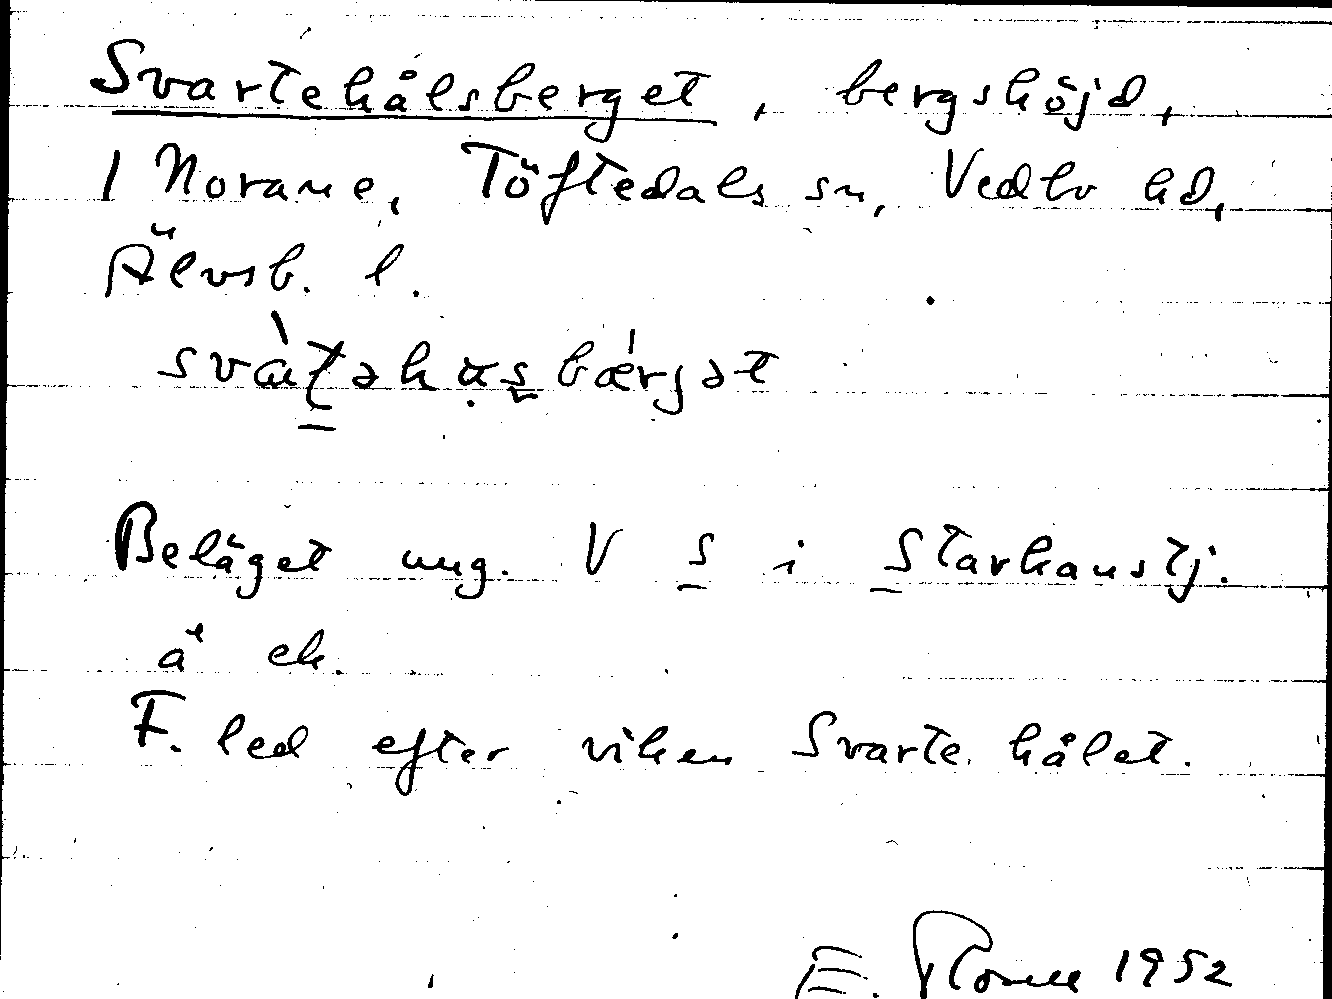 Svartehålsberget, bergshöjd,
1 Norane, Töftedals sn, Vedbo hd,
Älvsb. l.
Beläget ung. V s i Starkanstj.
å ek.
F. led efter viken Svarte hålet.
E. 1952